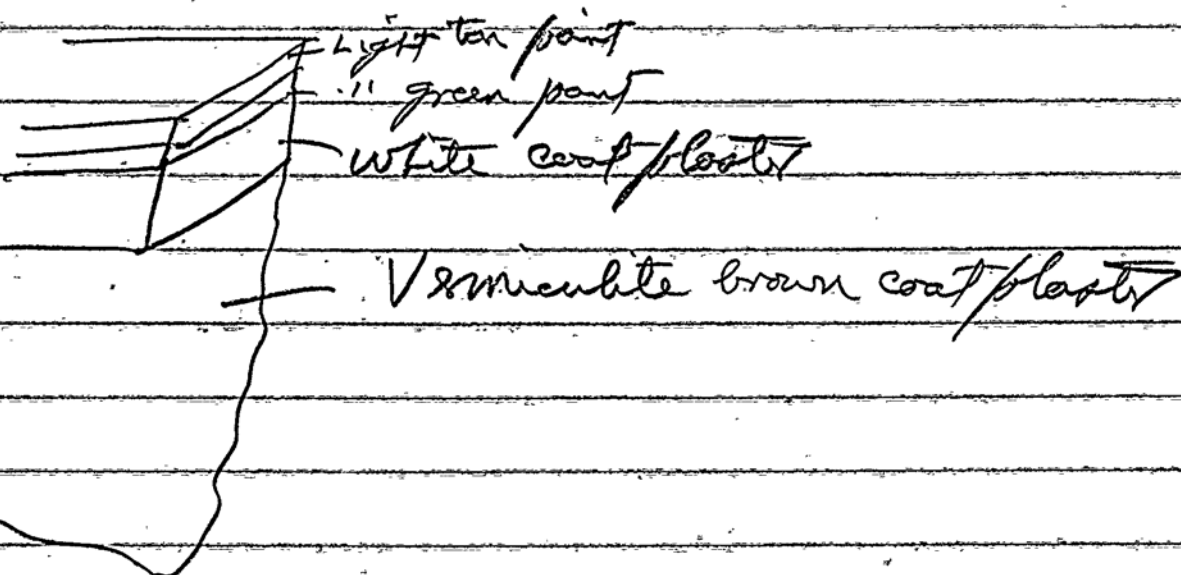 Light tan paint
" green paint
White coat plaster
Vermiculite brown coat plaster